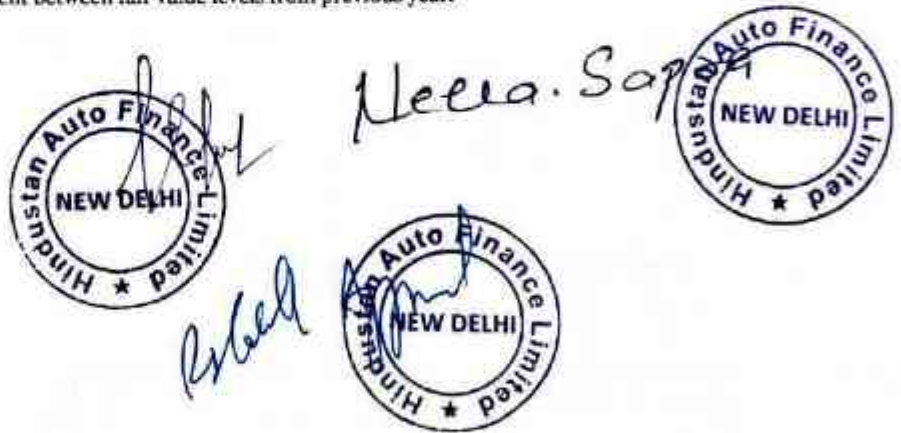 ent between fair value levels from previous year.
Hindustan Auto Finance Limited ★
NEW DELHI
Neera. Sap
Hindustan Auto Finance Limited ★
NEW DELHI
Hindustan Auto Finance Limited ★
NEW DELHI